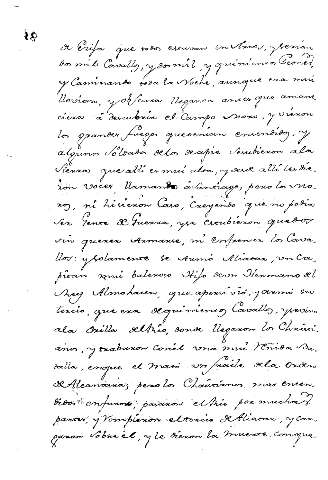 de Tarifa que todos escurian en Arnes, y serian
dos mil Cavallos, y dos mil, y quinientos Peones
y Caminando toda la Noche, aunque era mui
lloviosa, y obscura llegaron antes que amane
ciera à descubrir el Campo Moro, y vieron
los grandes fuegos que tenian encendidos, y
algunos Soldados de los de apie se subieron a la
Sierra que alli es mui alta, y desde alli les die
ron voces, llamando à Santiago, pero los Mo
ros, ni hicieron Caso, Creyendo que no podia
ser Gente de Guerra, y se estubieron quedos
sin querer Armarse, ni enfrenar los Cava
llos: y solamente se Armó Aliatar, un Ca
pitan mui valeroso Hijo de un Hermano del
Rey Almohacen, que apercivió, y armó su
tercio, que era de quinientos Cavallos, y se vino
a la Orilla del Rio, donde llegaron los Christi
anos, y trabaron con él una mui reñida Ba
talla, en que el Moro un fraile de la Orden
de Alcantara, pero los Christianos mas encen
didos en furor pasaron el Rio por muchas
partes, y rompieron el tercio de Aliatar, y car
garon sobre él, y le dieron la muerte, con que